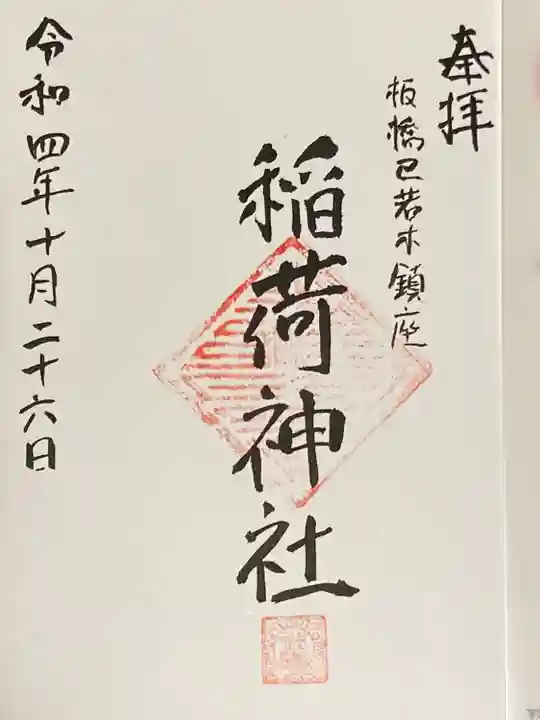 奉拝
板橋区若木鎮座
稲荷神社
令和四年十月二十六日